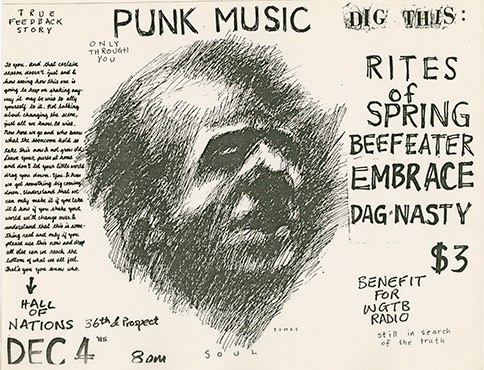 TRUE
FEEDBACK
STORY
PUNK MUSIC
DIG THIS:
ONLY
THROUGH
YOU
To you. And that certain
season doesn't just end &
how seeing how this one is
going to keep on shaking any-
way it may be wise to ally
yourself to it. Not talking
about changing the scene,
just all we know, be wise.
Now here we go and who knows
what the
take this now & not grow old
leave your purse at home
and don't let your little world
drag you down. You & how
we got something big coming
down. Understand that we
can only make it if you take
it & how if you shake your
world we'll change over &
understand that this is some-
thing real and only if you
please use this now and drop
all else can we reach the
bottom of what we all feel.
that's you you know who.
RITES
of
SPRING
BEEFEATER
EMBRACE
DAG-NASTY
$3
BENEFIT
FOR
WGTB
RADIO
still in search
of the truth
HALL
OF
NATIONS 36th & Prospect
DEC 4 '85
8 pm
SOUL
TOMAS